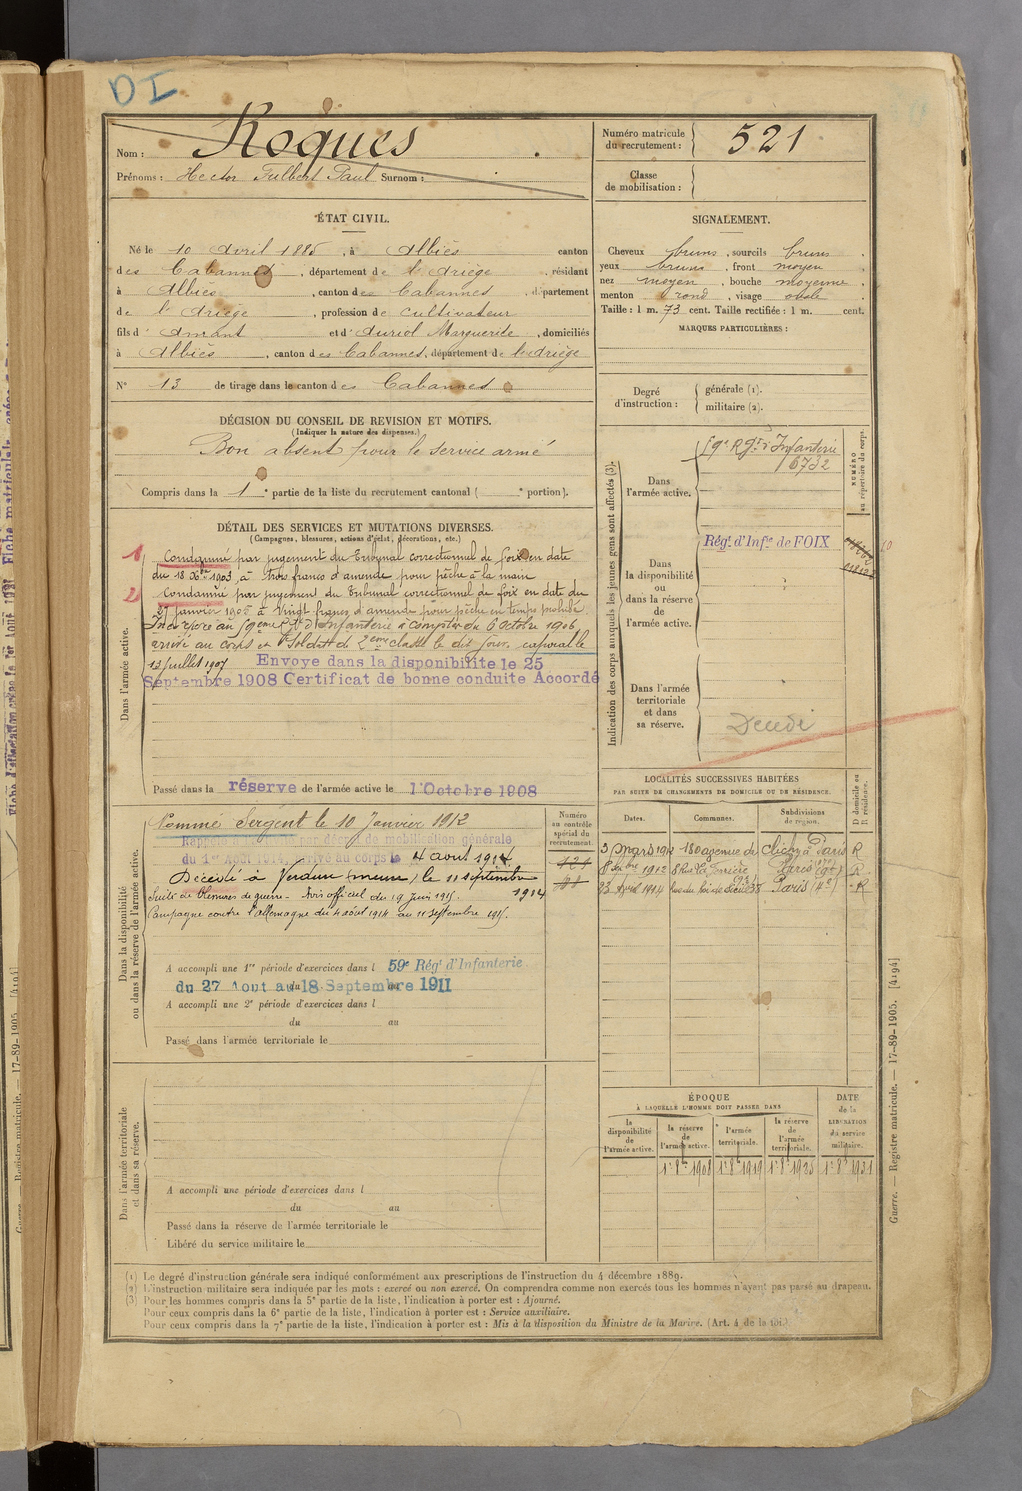 DI
Nom : Roques
Prénoms : Hector Gilbert Paul Surnom :
Numéro matricule du recrutement : 521
Classe de mobilisation :
ÉTAT CIVIL.
Né le 10 Avril 1885, à Albiès canton
des Cabannes, département de l'Ariège, résidant
à Albiès, canton des Cabannes, département
de l'Ariège, profession de Cultivateur
fils d'Amant et d'Auriol Marguerite, domiciliés
à Albiès, canton des Cabannes, département de l'Ariège
N° 13 de tirage dans le canton des Cabannes
SIGNALEMENT.
Cheveux bruns, sourcils bruns
yeux bruns, front moyen
nez moyen, bouche moyenne
menton rond, visage ovale
Taille : 1 m. 73 cent. Taille rectifiée : 1 m. cent.
MARQUES PARTICULIÈRES :
Degré d'instruction : générale (1).
militaire (2).
DÉCISION DU CONSEIL DE REVISION ET MOTIFS.
(Indiquer la nature des dispenses.)
Bon absent pour le service armé
Compris dans la 1e partie de la liste du recrutement cantonal ( e portion).
DÉTAIL DES SERVICES ET MUTATIONS DIVERSES.
(Campagnes, blessures, actions d'éclat, décorations, etc.)
Dans l'armée active.
1 Condamné par jugement du Tribunal correctionnel de foix en date
du 18 Xbre 1903, à trois francs d'amende pour pêche à la main
2 Condamné par jugement du Tribunal correctionnel de foix en date du
27 janvier 1905 à Vingt francs d'amende pour pêche en temps prohibé
Incorporé au 59eme Rgt d'Infanterie à compter du 6 octobre 1906
arrivé au corps et Soldat de 2eme classe le dit jour. caporal le
13 juillet 1907 Envoyé dans la disponibilité le 25
Septembre 1908 Certificat de bonne conduite Accordé
Passé dans la réserve de l'armée active le 1 Octobre 1908
Indication des corps auxquels les jeunes gens sont affectés (3).
NUMÉRO au répertoire du corps.
Dans l'armée active.
59e Rgt d'Infanterie
6732
Dans la disponibilité ou dans la réserve de l'armée active.
Régt d'Infie de FOIX
Dans l'armée territoriale et dans sa réserve.
Décédé
Dans la disponibilité ou dans la réserve de l'armée active.
Nommé Sergent le 10 Janvier 1912
Rappelé à l'activité par décret de mobilisation générale
du 1er Août 1914, arrivé au corps le 4 aout 1914
Décédé à Verdun (meuse) le 11 septembre
1914
Suite de blessures de guerre - Avis officiel du 19 juin 1915.
Campagne contre l'allemagne du 4 août 1914 au 11 septembre 1915.
A accompli une 1re période d'exercices dans l 59e Régt d'Infanterie
du 27 Aout au 18 Septembre 1911
A accompli une 2e période d'exercices dans l
du au
Passé dans l'armée territoriale le
Numéro au contrôle spécial du recrutement.
LOCALITÉS SUCCESSIVES HABITÉES
PAR SUITE DE CHANGEMENTS DE DOMICILE OU DE RÉSIDENCE.
Dates. Communes. Subdivisions de région. D domicile ou R résidence.
3 mars 1912 180 avenue de Clichy à Paris R
8 7bre 1912 8 Rue La Ferrière Paris (9e) R
23 Avril 1914 Rue du roi de Sicile 38 Paris (4e) R
Dans l'armée territoriale et dans sa réserve.
A accompli une période d'exercices dans l
du au
Passé dans la réserve de l'armée territoriale le
Libéré du service militaire le
ÉPOQUE
À LAQUELLE L'HOMME DOIT PASSER DANS
la disponibilité de l'armée active. la réserve de l'armée active. l'armée territoriale. la réserve de l'armée territoriale. DATE de la LIBÉRATION du service militaire.
1er 8bre 1908 1er 8bre 1919 1er 8bre 1925 1er 8bre 1931
(1) Le degré d'instruction générale sera indiqué conformément aux prescriptions de l'instruction du 4 décembre 1889.
(2) L'instruction militaire sera indiquée par les mots : exercé ou non exercé. On comprendra comme non exercés tous les hommes n'ayant pas passé au drapeau.
(3) Pour les hommes compris dans la 5e partie de la liste, l'indication à porter est : Ajourné.
Pour ceux compris dans la 6e partie de la liste, l'indication à porter est : Service auxiliaire.
Pour ceux compris dans la 7e partie de la liste, l'indication à porter est : Mis à la disposition du Ministre de la Marine. (Art. 4 de la loi.)
Guerre. — Registre matricule. — 17-89-1905. [4194]